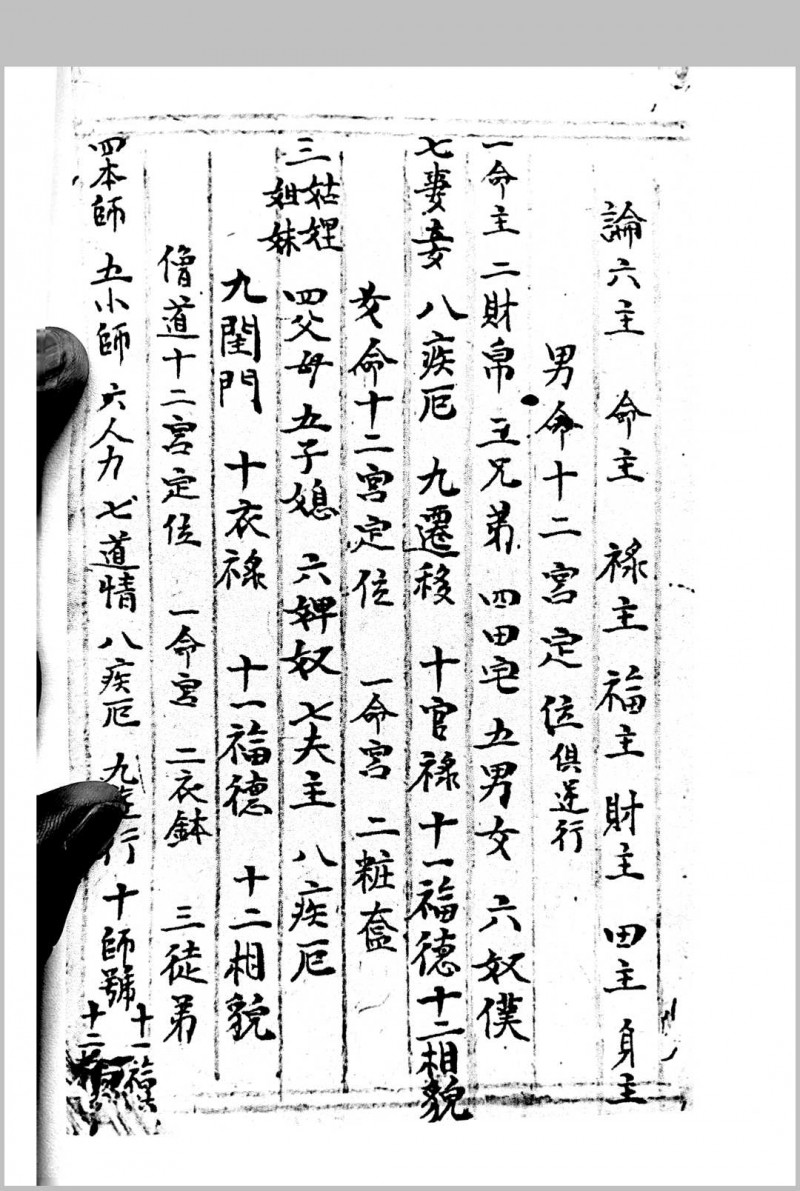 論六主 命主 祿主 福主 財主 田主 身主
男命十二宮定位俱逆行
一命主 二財帛 三兄弟 四田宅 五男女 六奴僕
七妻妾 八疾厄 九遷移 十官祿 十一福德 十二相貌
女命十二宮定位 一命宮 二粧奩
三姑娌姐妹 四父母 五子媳 六婢奴 七夫主 八疾厄
九閨門 十衣祿 十一福德 十二相貌
僧道十二宮定位 一命宮 二衣鉢 三徒弟
四本師 五小師 六人力 七道情 八疾厄 九行 十師號 十一福 十二